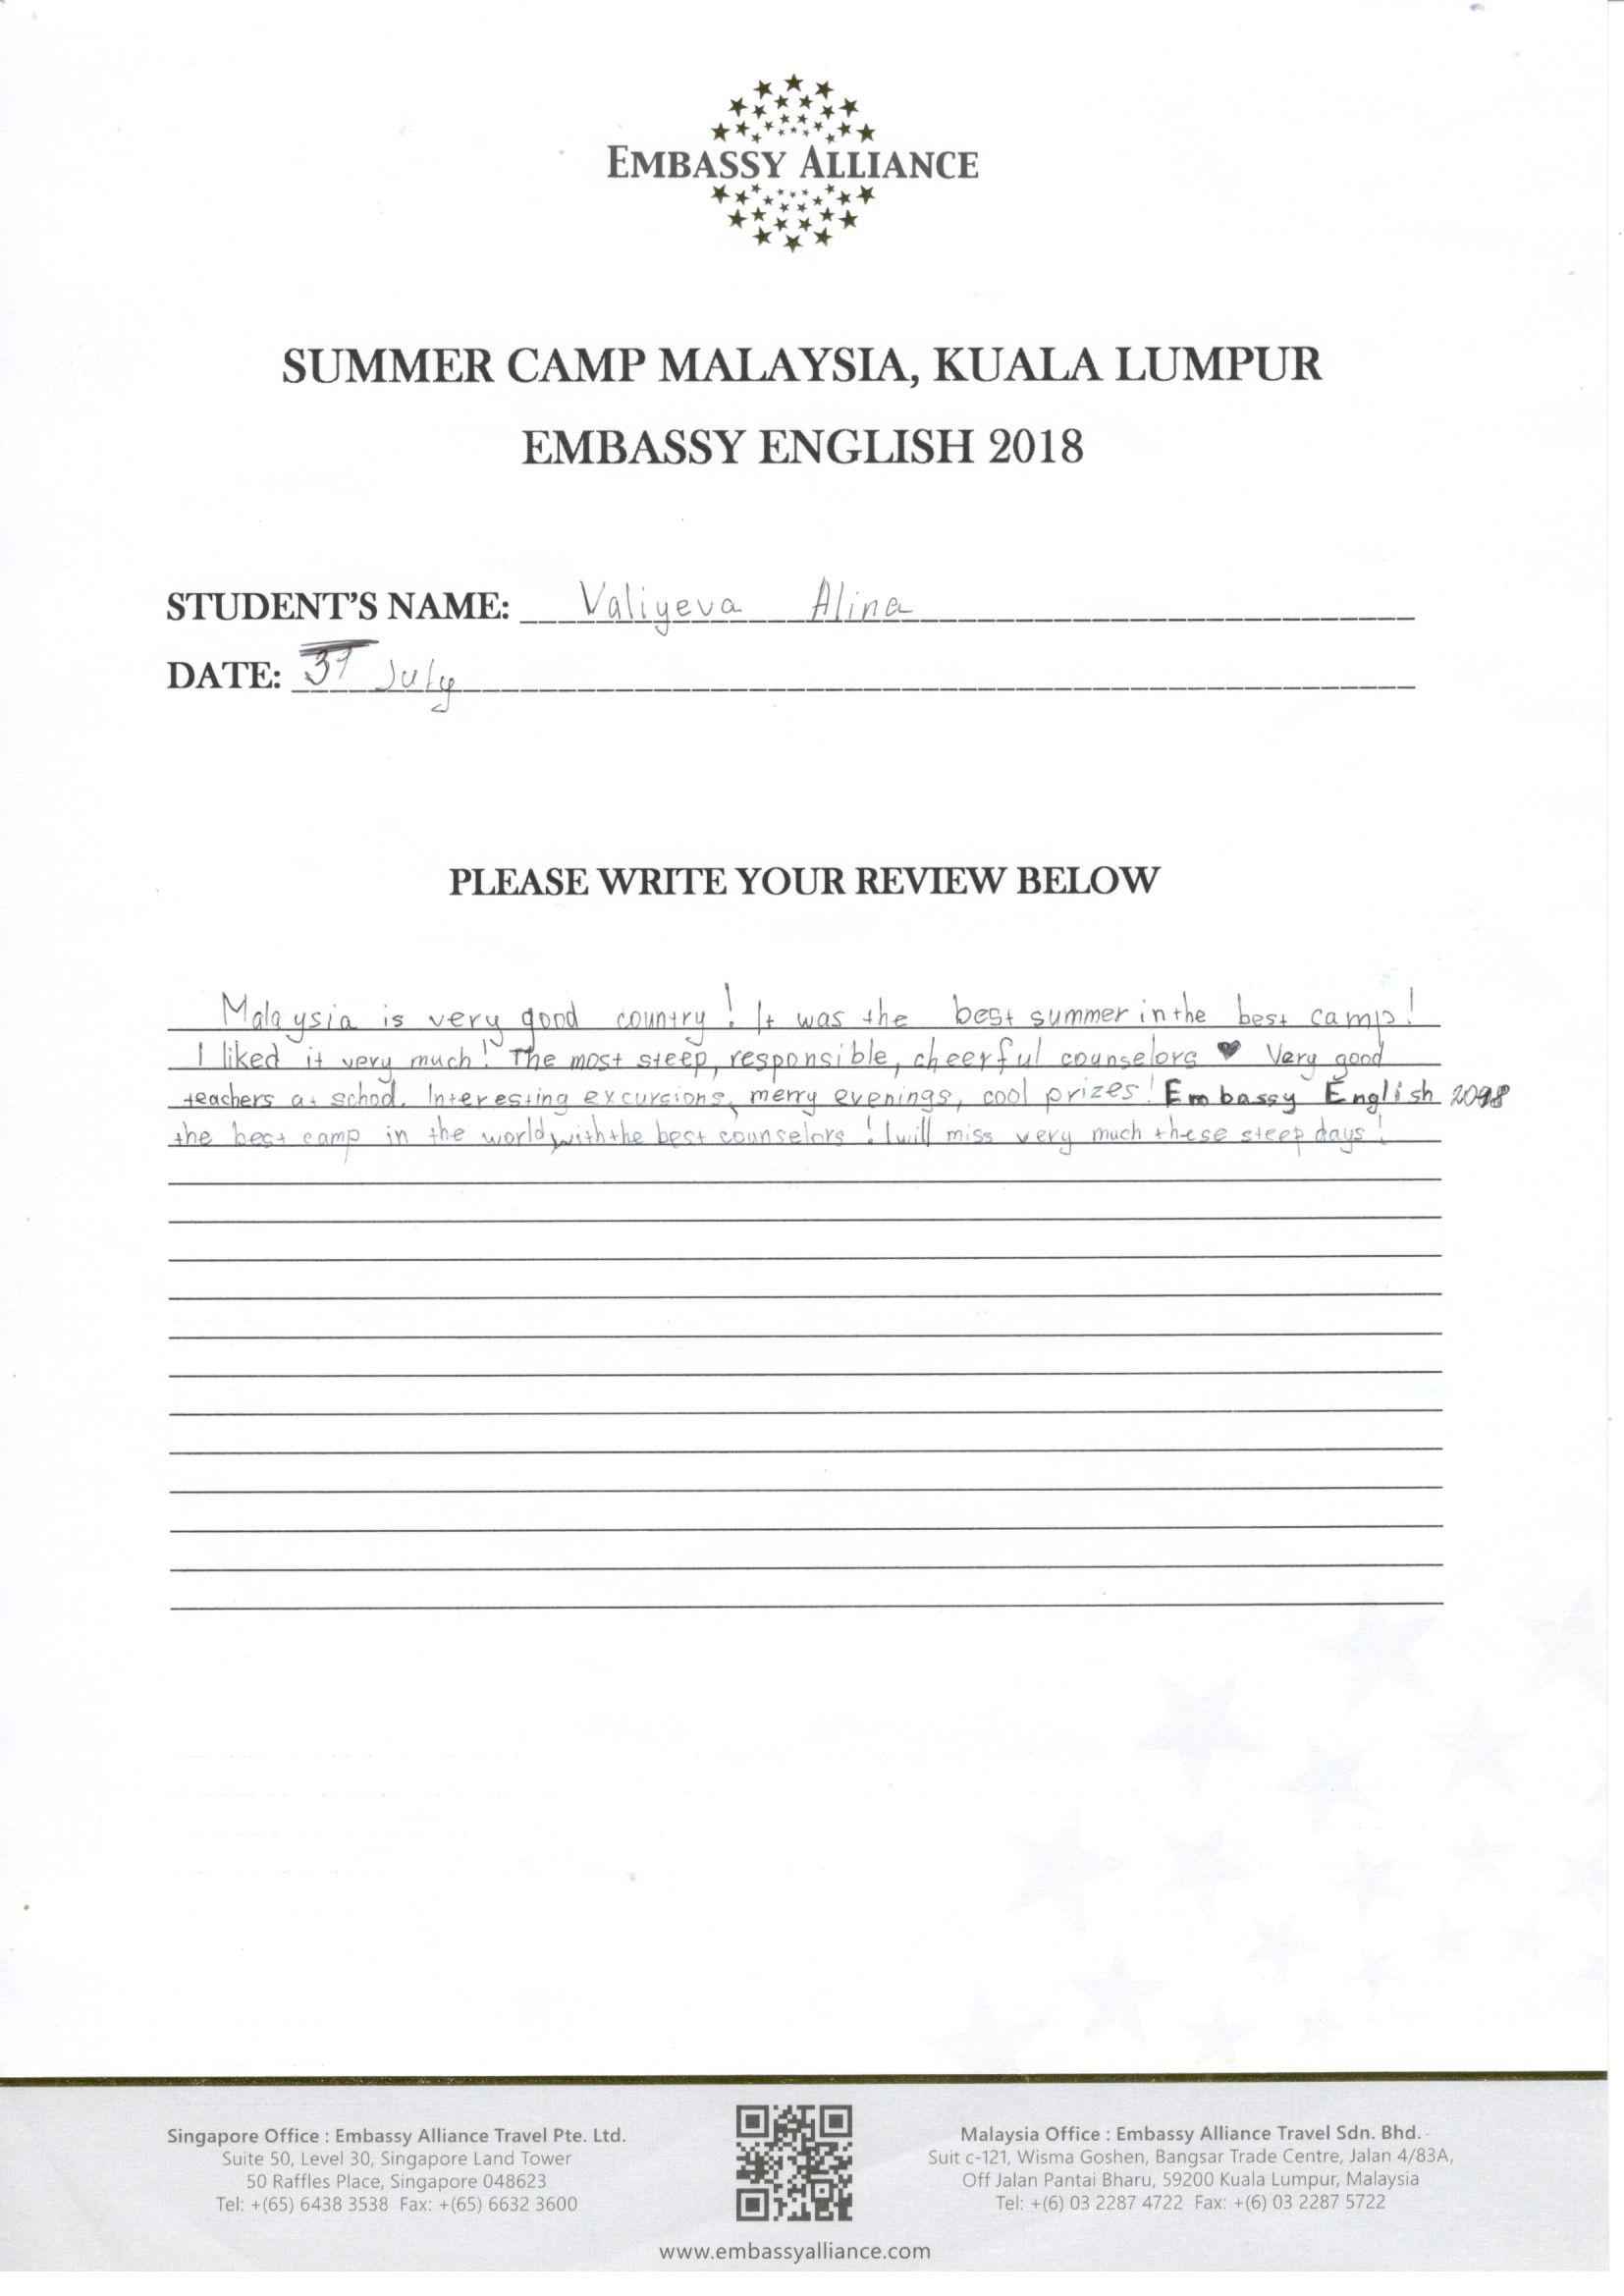 EMBASSY ALLIANCE
SUMMER CAMP MALAYSIA, KUALA LUMPUR
EMBASSY ENGLISH 2018
STUDENT'S NAME: Valiyeva Alina
DATE: 31 July
PLEASE WRITE YOUR REVIEW BELOW
Malaysia is very good country! It was the best summer in the best camp!
I liked it very much! The most steep, responsible, cheerful counselors ♥ Very good
teachers at school. Interesting excursions, merry evenings, cool prizes! Embassy English 2018
the best camp in the world, with the best counselors! I will miss very much these steep days!
Singapore Office : Embassy Alliance Travel Pte. Ltd.
Suite 50, Level 30, Singapore Land Tower
50 Raffles Place, Singapore 048623
Tel: +(65) 6438 3538 Fax: +(65) 6632 3600
Malaysia Office : Embassy Alliance Travel Sdn. Bhd.
Suit c-121, Wisma Goshen, Bangsar Trade Centre, Jalan 4/83A,
Off Jalan Pantai Bharu, 59200 Kuala Lumpur, Malaysia
Tel: +(6) 03 2287 4722 Fax: +(6) 03 2287 5722
www.embassyalliance.com